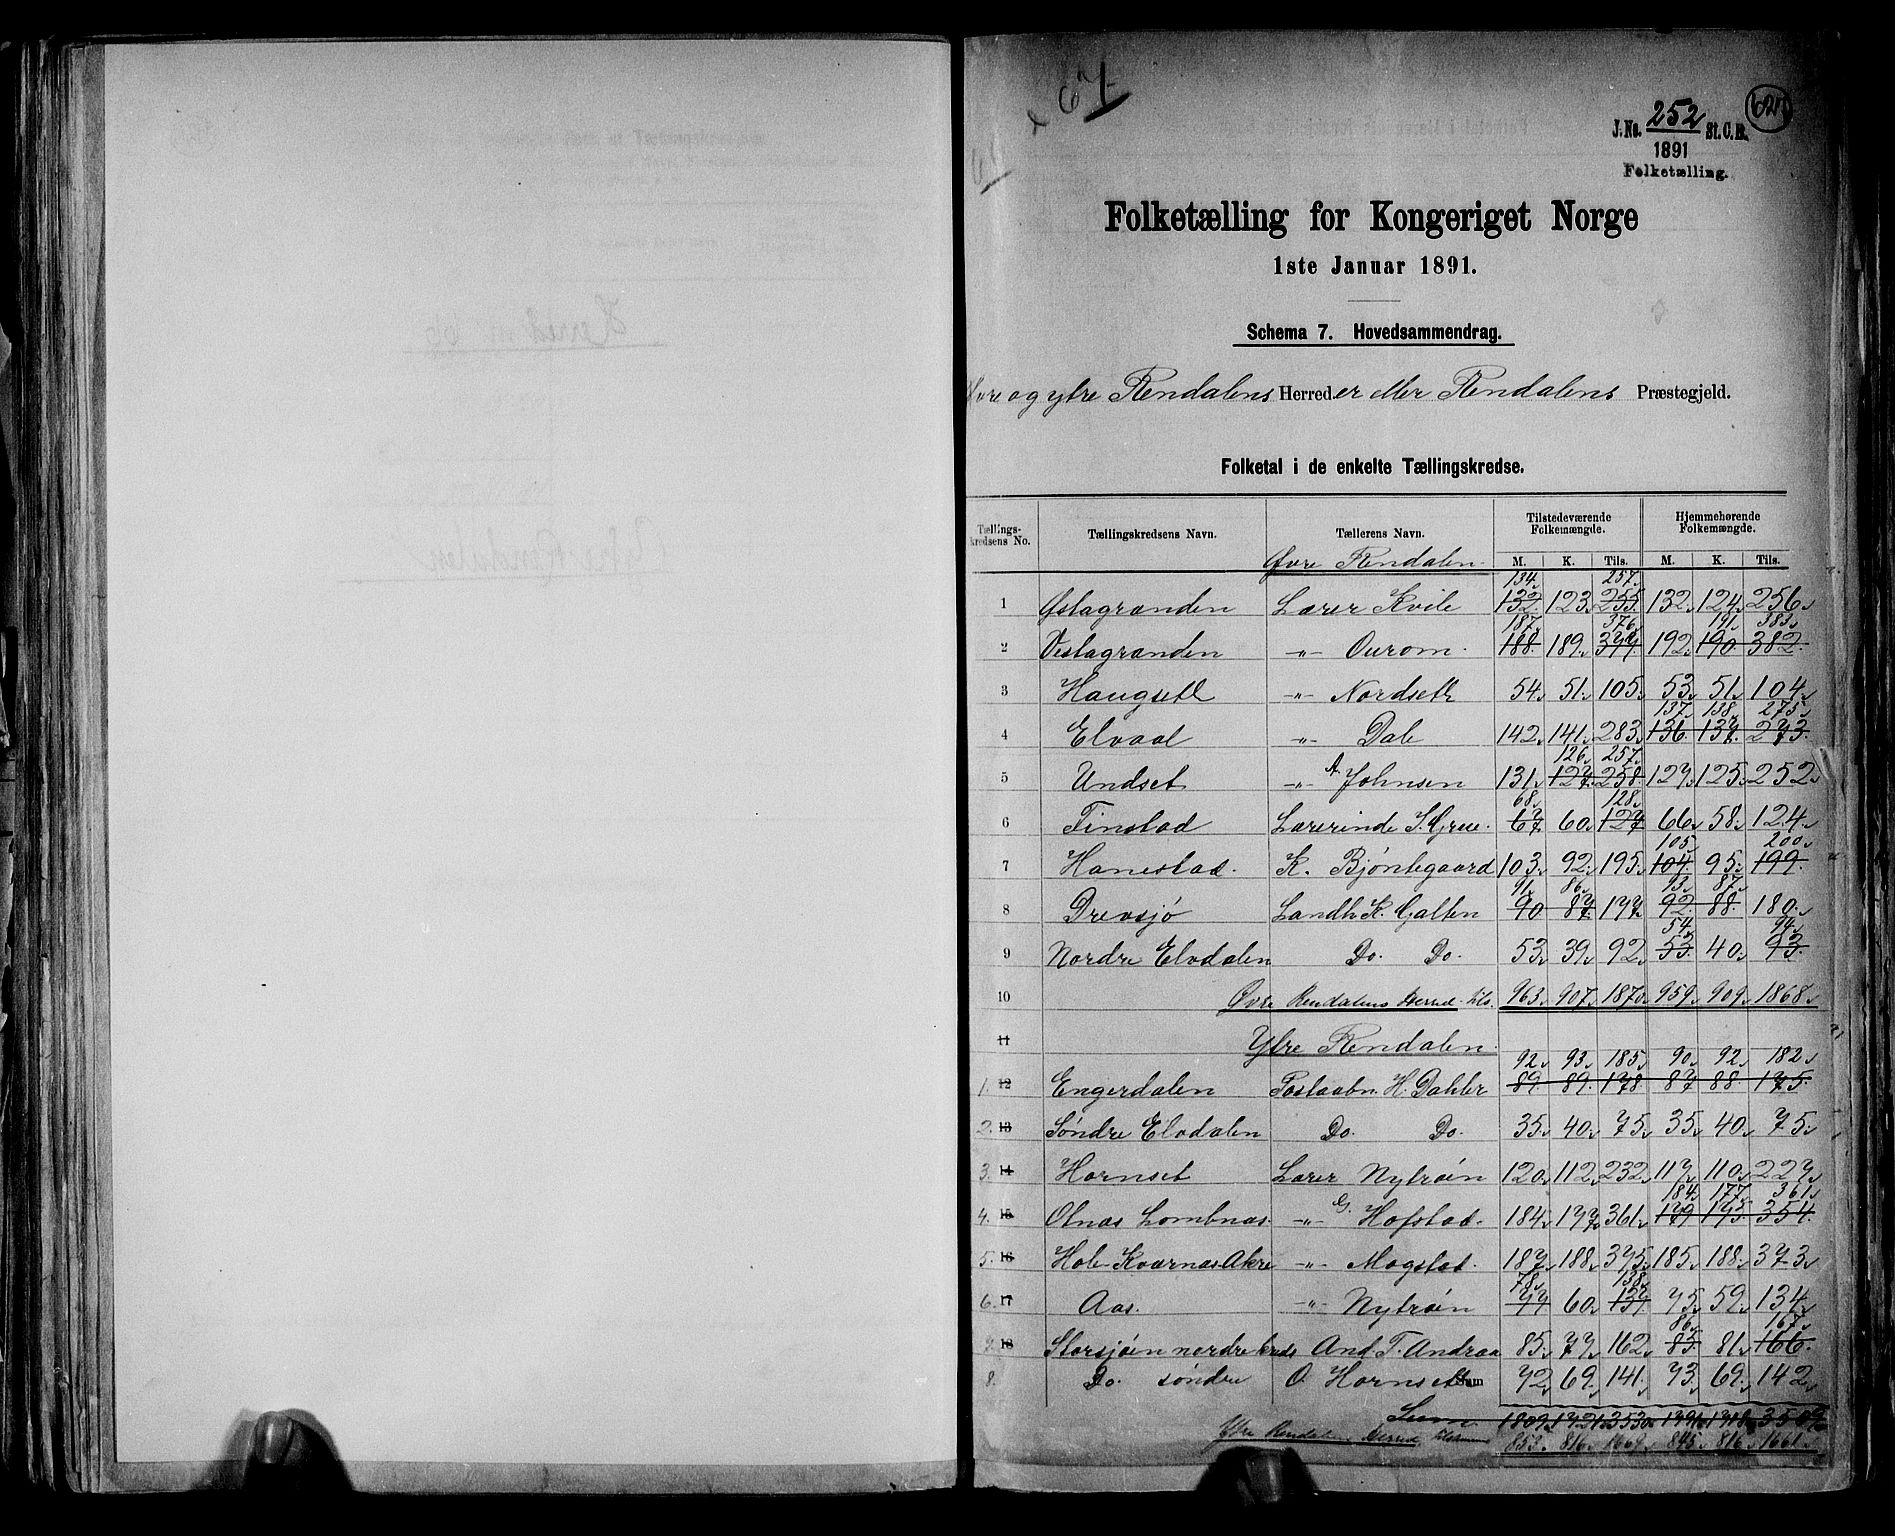 67
J. No. 252 St. C. B.
1891
Folketælling.
Folketælling for Kongeriget Norge
1ste Januar 1891.
Schema 7. Hovedsammendrag.
Øvre og ytre Rendalens Herred.er eller Rendalens Præstegjeld.
Folketal i de enkelte Tællingskredse.
Tællings-kredsens No. Tællingskredsens Navn. Tællerens Navn. Tilstedeværende Folkemængde. Hjemmehørende Folkemængde.
Øvre Rendalen. M. K. Tils. M. K. Tils.
134 257
1 Østagrænden Lærer Kvile 132 123 255 132 124 256
187 376 191 383
2 Vestagrænden -"- Ourom. 188 189 377 192 190 382
3 Haugsett -"- Nordseth 54 51 105 53 51 104
137 138 275
4 Elvaal -"- Dal 142 141 283 136 137 273
126 257
5 Undset -"- A. Johnsen 131 127 258 127 125 252
68 128
6 Finstad Lærerinde I. Grue. 67 60 127 66 58 124
105 200
7 Hanestad. K. Bjøntegaard 103 92 195 104 95 199
91 86 93 87
8 Drevsjø Landh. K. Galten 90 87 177 92 88 180
54 94
9 Nordre Elvdalen Do. Do. 53 39 92 53 40 93
10 Øvre Rendalens Herred. Tils. 963 907 1870 959 909 1868
11 Ytre Rendalen.
92 93 185 90 92 182
1. 12 Engerdalen Postaabn. H. Dahler 89 89 178 87 88 175
2. 13 Søndre Elvdalen Do. Do. 35 40 75 35 40 75
3. 14 Hornset Lærer Nytrøin 120 112 232 117 110 227
184 177 361
4. 15 Otnæs Lombnæs -"- G. Hofstad. 184 177 361 179 175 354
5. 16 Hole Kværnæs Akre -"- Mogstad. 187 188 375 185 188 373
78 138
6. 17 Aas. -"- Nytrøin 77 60 137 75 59 134
86 167
7. 18 Storsjøen nordre kreds And. T. Andraa 85 77 162 85 81 166
8. Do. søndre O. Hornseth Sum 72 69 141 73 69 142
Sum 1809 1721 3530
Ytre Rendalen Herred, tilsammen 853 816 1669 845 816 1661